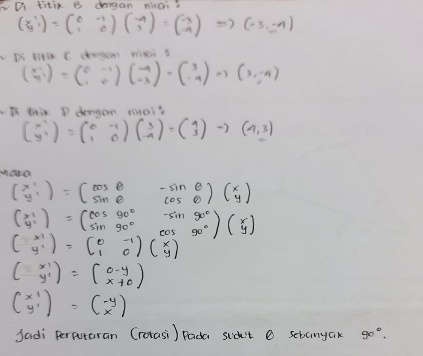 ~ Di titik B dengan nilai :
(x' y') = (0 -1 1 0) (-4 3) = (-3 -4) => (-3, -4)
~ Di titik C dengan nilai :
(x' y') = (0 -1 1 0) (-4 -3) = (3 -4) => (3, -4)
~ Di titik D dengan nilai :
(x' y') = (0 -1 1 0) (3 -4) = (4 3) -> (4, 3)
Maka
(x' y') = (cos θ -sin θ sin θ cos θ) (x y)
(x' y') = (cos 90° -sin 90° sin 90° cos 90°) (x y)
(x' y') = (0 -1 1 0) (x y)
(x' y') = (0-y x+0)
(x' y') = (-y x)
Jadi Perputaran (rotasi) Pada sudut θ sebanyak 90°.